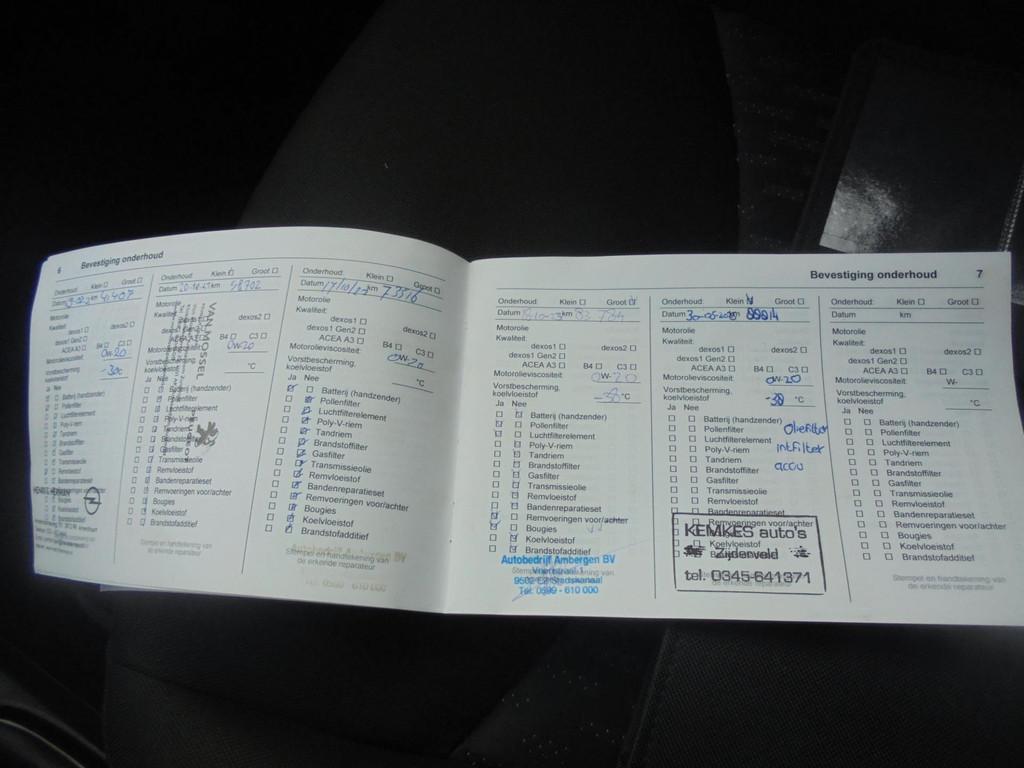 6 Bevestiging onderhoud
Onderhoud: Klein ☐ Groot ☐
Datum km 41407
Motorolie
Kwaliteit:
dexos1 ☐ dexos2 ☐
dexos1 Gen2 ☐
ACEA A3 ☐ B4 ☐ C3 ☐
Motorolieviscositeit: 0W-20
Vorstbescherming,
koelvloeistof -30 °C
Ja Nee
Batterij (handzender)
Pollenfilter
Luchtfilterelement
Poly-V-riem
Tandriem
Brandstoffilter
Gasfilter
Transmissieolie
Remvloeistof
Bandenreparatieset
Onderhoud: Klein Groot ☐
Datum km 58702
Motorolie
Kwaliteit:
dexos2 ☐
B4 ☐ C3 ☐
0W20
Vorstbescherming,
koelvloeistof °C
Ja Nee
Batterij (handzender)
Pollenfilter
Luchtfilterelement
Poly-V-riem
Tandriem
Brandstoffilter
Gasfilter
Transmissieolie
Remvloeistof
Bandenreparatieset
Remvoeringen voor/achter
Bougies
Koelvloeistof
Brandstofadditief
Stempel en handtekening van
de erkende reparateur
VAN MOSSEL
Onderhoud: Klein ☐ Groot ☐
Datum 17/10/22 km 73516
Motorolie
Kwaliteit:
dexos1 ☐ dexos2 ☐
dexos1 Gen2 ☐
ACEA A3 ☐ B4 ☐ C3 ☐
Motorolieviscositeit: 0W-20
Vorstbescherming,
koelvloeistof °C
Ja Nee
Batterij (handzender)
Pollenfilter
Luchtfilterelement
Poly-V-riem
Tandriem
Brandstoffilter
Gasfilter
Transmissieolie
Remvloeistof
Bandenreparatieset
Remvoeringen voor/achter
Bougies
Koelvloeistof
Brandstofadditief
Autobedrijf Ambergen BV
Stempel en handtekening van
de erkende reparateur
610 000
Bevestiging onderhoud 7
Onderhoud: Klein ☐ Groot ☑
Datum km 83 784
Motorolie
Kwaliteit:
dexos1 ☐ dexos2 ☐
dexos1 Gen2 ☐
ACEA A3 ☐ B4 ☐ C3 ☐
Motorolieviscositeit: 0W-20
Vorstbescherming,
koelvloeistof °C
Ja Nee
Batterij (handzender)
Pollenfilter
Luchtfilterelement
Poly-V-riem
Tandriem
Brandstoffilter
Gasfilter
Transmissieolie
Remvloeistof
Bandenreparatieset
Remvoeringen voor/achter
Bougies
Koelvloeistof
Brandstofadditief
Autobedrijf Ambergen BV
9502 EZ Stadskanaal
Tel: 0599 - 610 000
Onderhoud: Klein ☑ Groot ☐
Datum km
Motorolie
Kwaliteit:
dexos1 ☐ dexos2 ☐
dexos1 Gen2 ☐
ACEA A3 ☐ B4 ☐ C3 ☐
Motorolieviscositeit: 0W-20
Vorstbescherming,
koelvloeistof -38 °C
Ja Nee
☐ ☐ Batterij (handzender)
☐ ☐ Pollenfilter oliefilter
☐ ☐ Luchtfilterelement
☐ ☐ Poly-V-riem intfilter
☐ ☐ Tandriem
☐ ☐ Brandstoffilter accu
☐ ☐ Gasfilter
☐ ☐ Transmissieolie
☐ ☐ Remvloeistof
☐ ☐ Bandenreparatieset
Remvoeringen voor/achter
KEMKES auto's
Koelvloeistof
Zijderveld
tel: 0345-641371
Onderhoud: Klein ☐ Groot ☐
Datum km
Motorolie
Kwaliteit:
dexos1 ☐ dexos2 ☐
dexos1 Gen2 ☐
ACEA A3 ☐ B4 ☐ C3 ☐
Motorolieviscositeit: W-
Vorstbescherming,
koelvloeistof °C
Ja Nee
☐ ☐ Batterij (handzender)
☐ ☐ Pollenfilter
☐ ☐ Luchtfilterelement
☐ ☐ Poly-V-riem
☐ ☐ Tandriem
☐ ☐ Brandstoffilter
☐ ☐ Gasfilter
☐ ☐ Transmissieolie
☐ ☐ Remvloeistof
☐ ☐ Bandenreparatieset
☐ ☐ Remvoeringen voor/achter
☐ ☐ Bougies
☐ ☐ Koelvloeistof
☐ ☐ Brandstofadditief
Stempel en handtekening van
de erkende reparateur